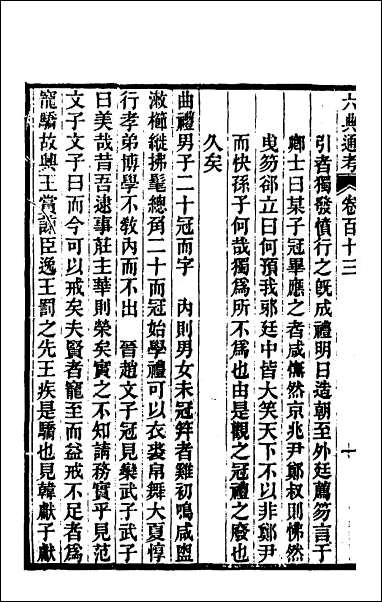 六典通考　卷百十三　十
引者獨發憤行之旣成禮明日造朝至外廷薦笏言于
鄉士曰某子冠畢應之者咸憮然京兆尹鄭叔則怫然
曵笏郤立曰何預我邪廷中皆大笑天下不以非鄭尹
而快孫子何哉獨爲所不爲也由是觀之冠禮之廢也
久矣
曲禮男子二十冠而字　內則男女未冠笄者雞初鳴咸盥
漱櫛縰拂髦總角二十而冠始學禮可以衣裘帛舞大夏惇
行孝弟博學不敎內而不出　晉趙文子冠見欒武子武子
曰美哉昔吾逮事莊主華則榮矣實之不知請務實乎見范
文子文子曰而今可以戒矣夫賢者寵至而益戒不足者爲
寵驕故興王賞諫臣逸王罰之先王疾是驕也見韓獻子獻